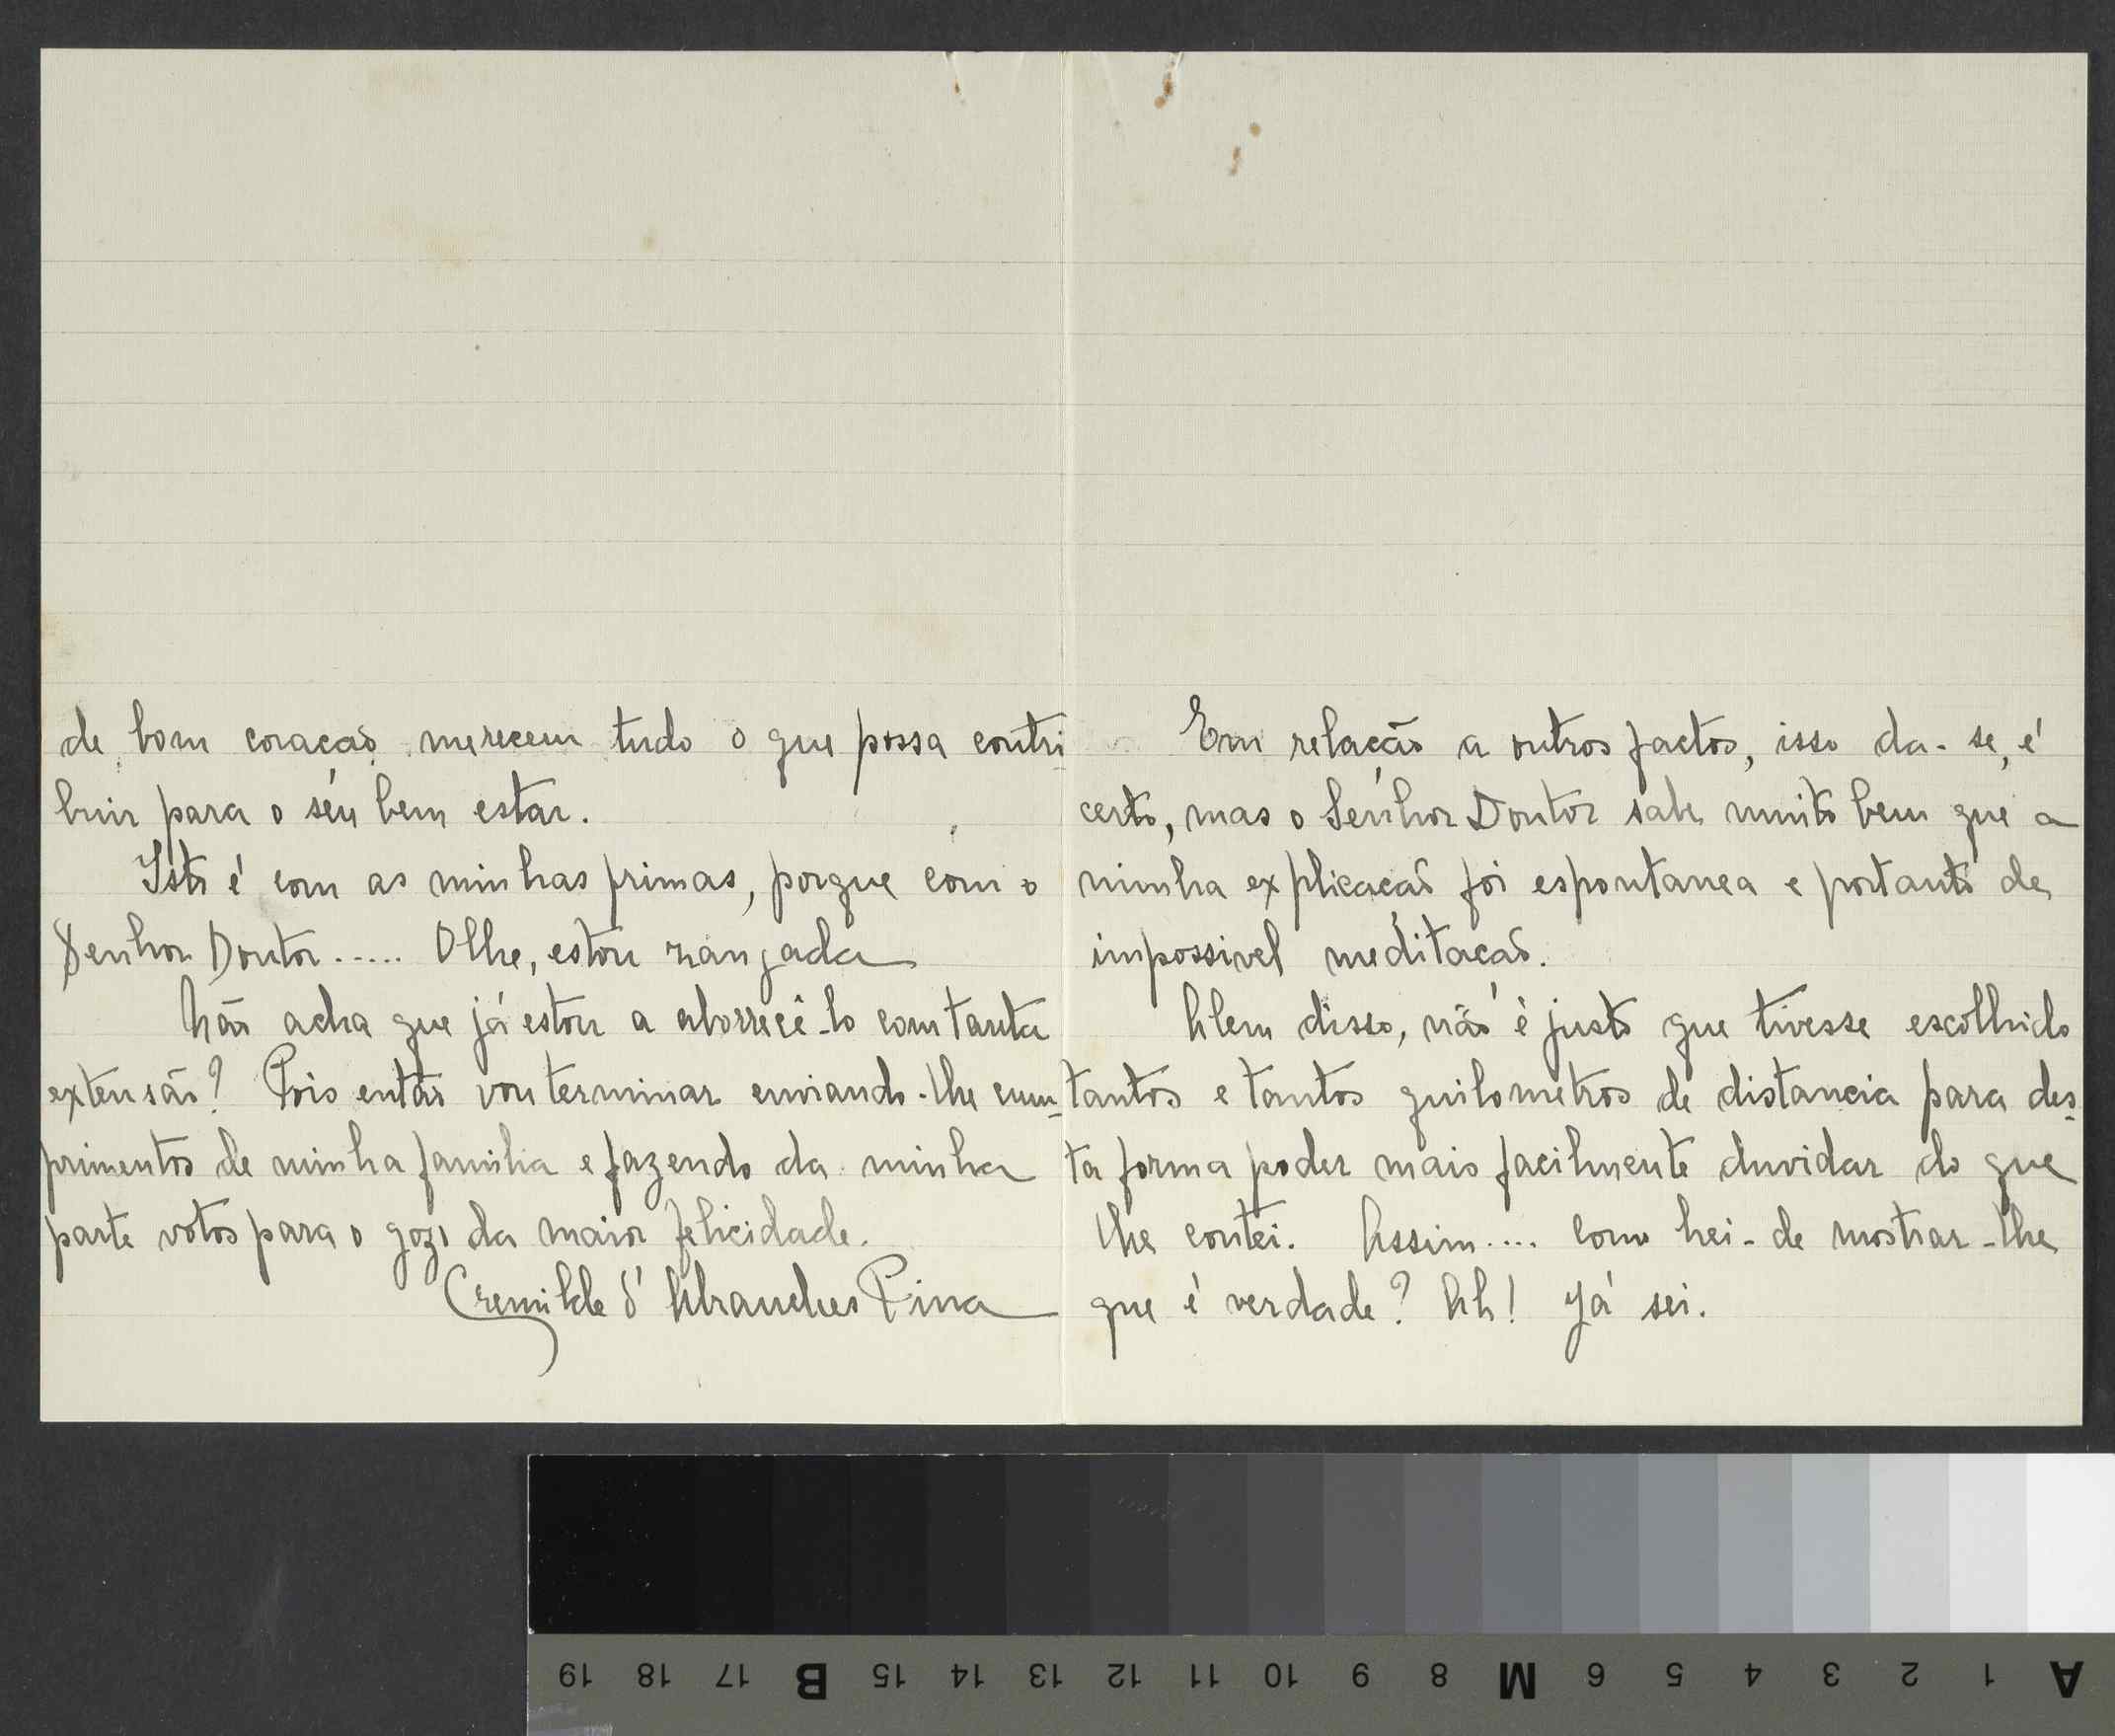 de bom coração merecem tudo o que possa contri-
buir para o seu bem estar.
Isto é com as minhas primas, porque com o
Senhor Doutor..... Olhe, estou zangada
Não acha que já estou a aborrecê-lo com tanta
extensão? Pois então vou terminar enviando-lhe cum-
primentos de minha familia e fazendo da minha
parte votos para o gozo da maior felicidade.
Cremilde d'Abranches Pina
Em relação a outros factos, isso da-se, é
certo, mas o Senhor Doutor sabe muito bem que a
minha explicação foi espontanea e portanto de
impossivel meditação.
Alem disso, não é justo que tivesse escolhido
tantos e tantos quilometros de distancia para des-
ta forma poder mais facilmente duvidar do que
lhe contei. Assim.... como hei-de mostrar-lhe
que é verdade? Ah! Já sei.
A 1 2 3 4 5 6 M 8 9 10 11 12 13 14 15 B 17 18 19